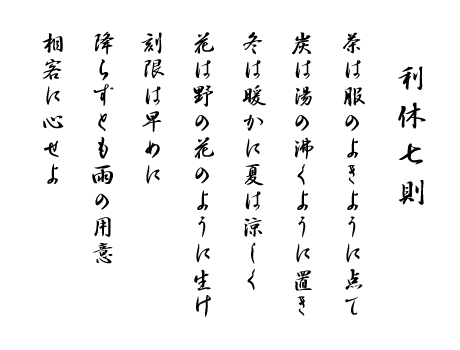 利休七則
茶は服のよきように点て
炭は湯の沸くように置き
冬は暖かに夏は涼しく
花は野の花のように生け
刻限は早めに
降らずとも雨の用意
相客に心せよ